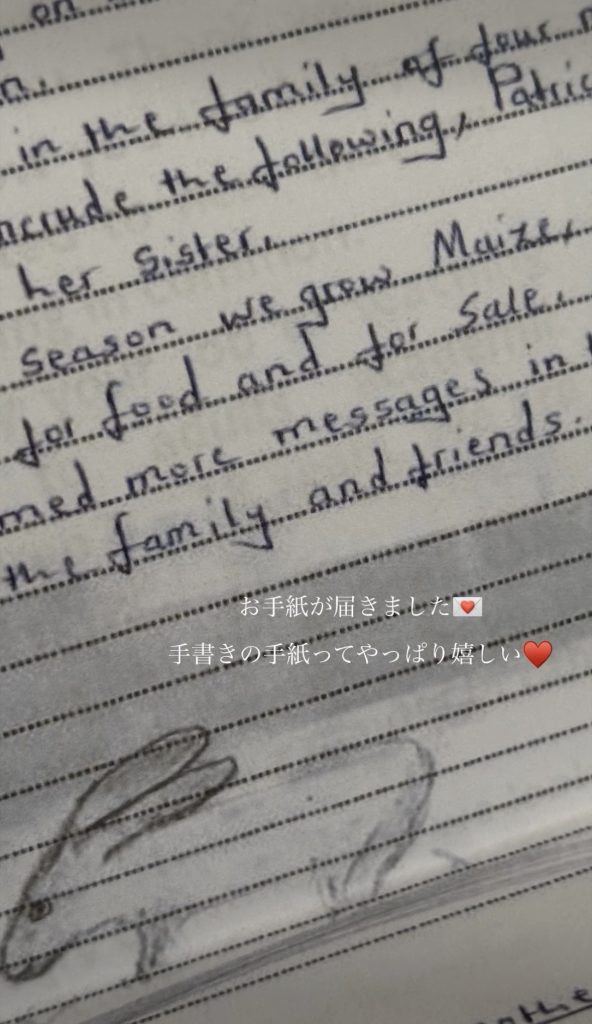 on
in the family of four
nclude the following, Patric
her sister.
season we grow Maize,
for food and for sale.
med more messages in
the family and friends.
お手紙が届きました💌
手書きの手紙ってやっぱり嬉しい♥️